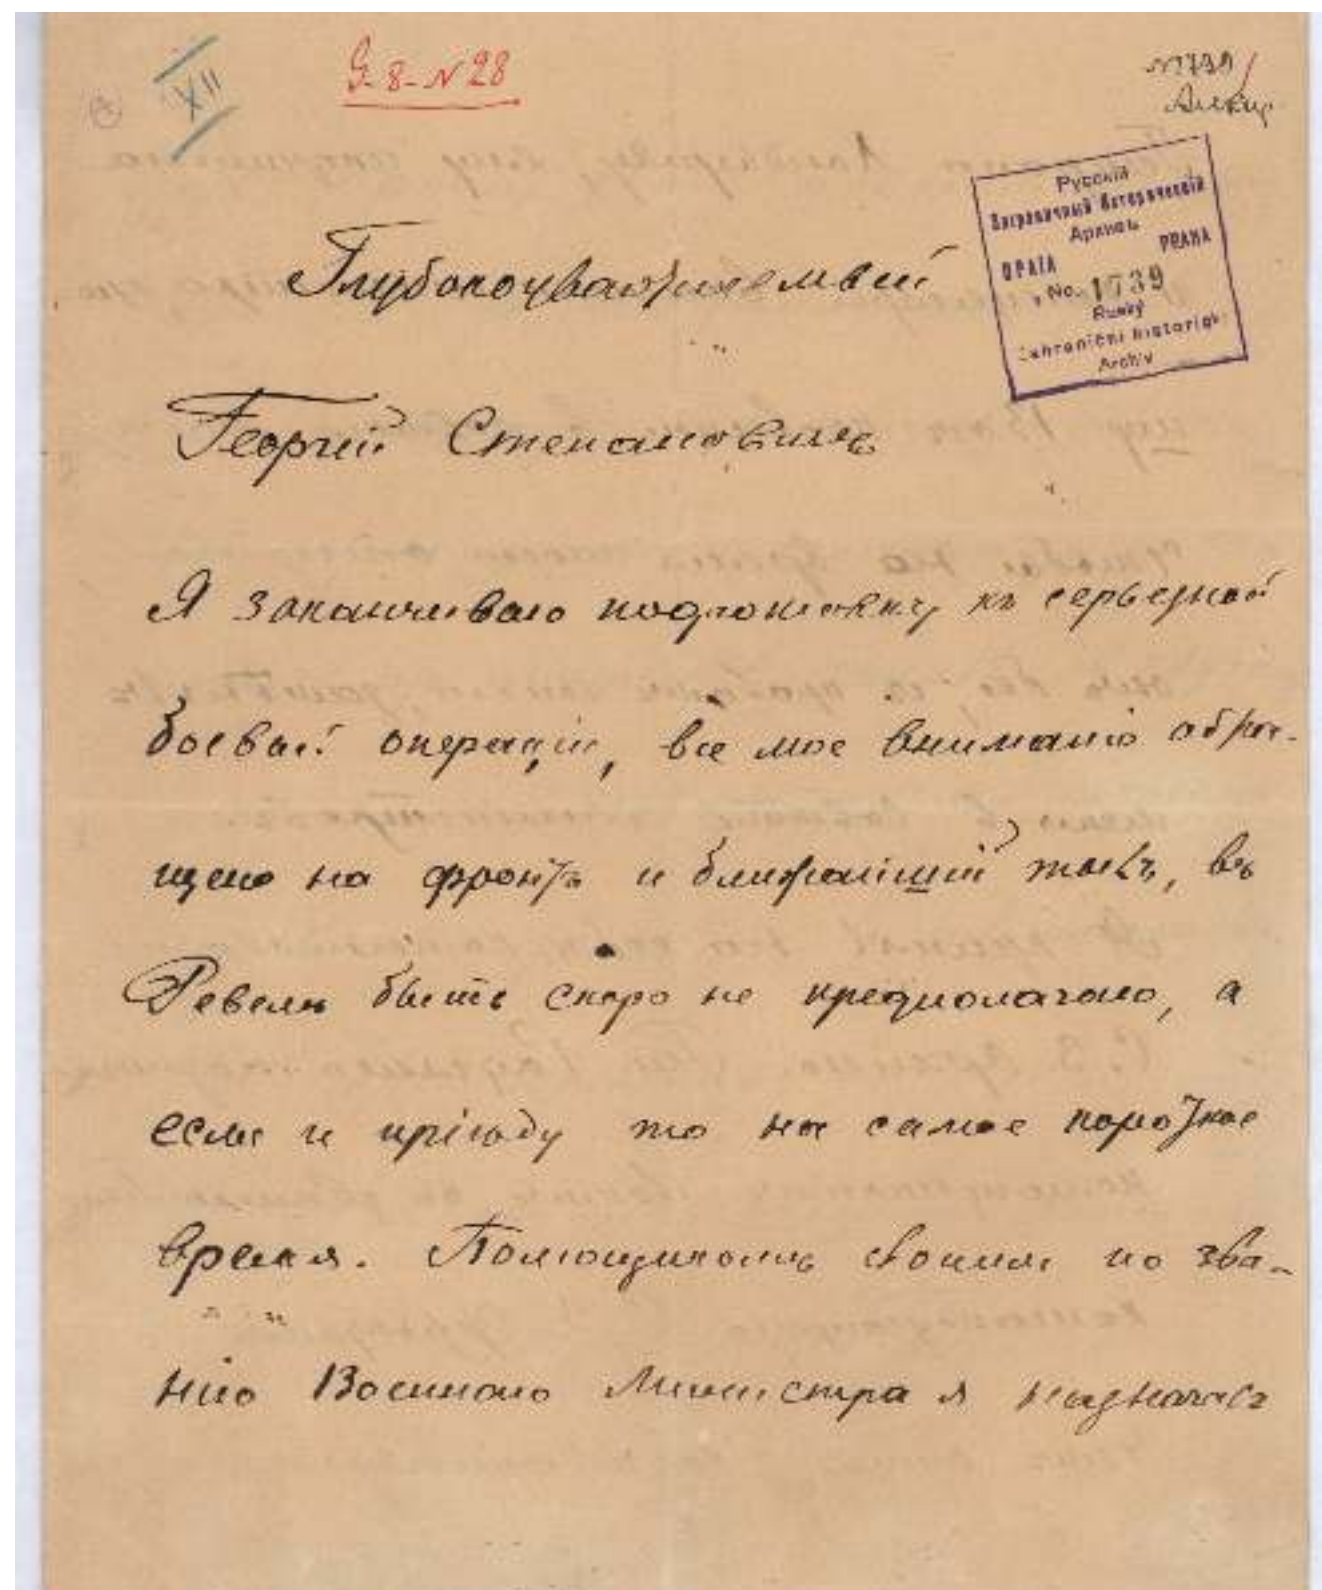 XII
9-8-N28
N1739
Русскій
Заграничный Историческій
Архивъ
ПРАГА PRAHA
No. 1739
Ruský
Zahraniční historický
Archiv
Глубокоуважаемый
Георгій Степановичъ
Я заканчиваю подготовку къ серьезной
боевой операціи, все мое вниманіе обра-
щено на фронтъ и ближайшій тылъ, въ
Ревель быть скоро не предполагаю, а
если и пріѣду то на самое короткое
время. Помощникомъ своимъ по зва-
нію Военнаго Министра я назначаю